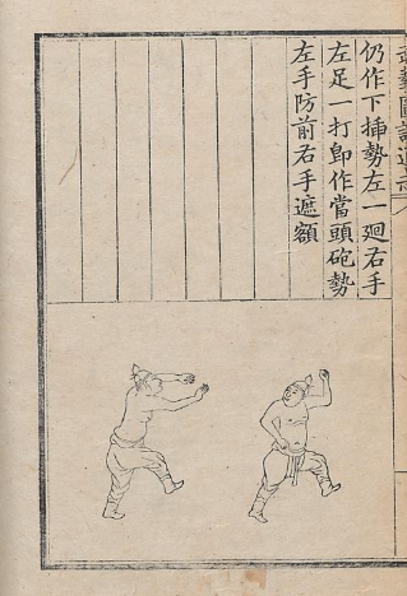 武藝圖譜通志
仍作下揷勢左一廻右手
左足一打卽作當頭砲勢
左手防前右手遮額